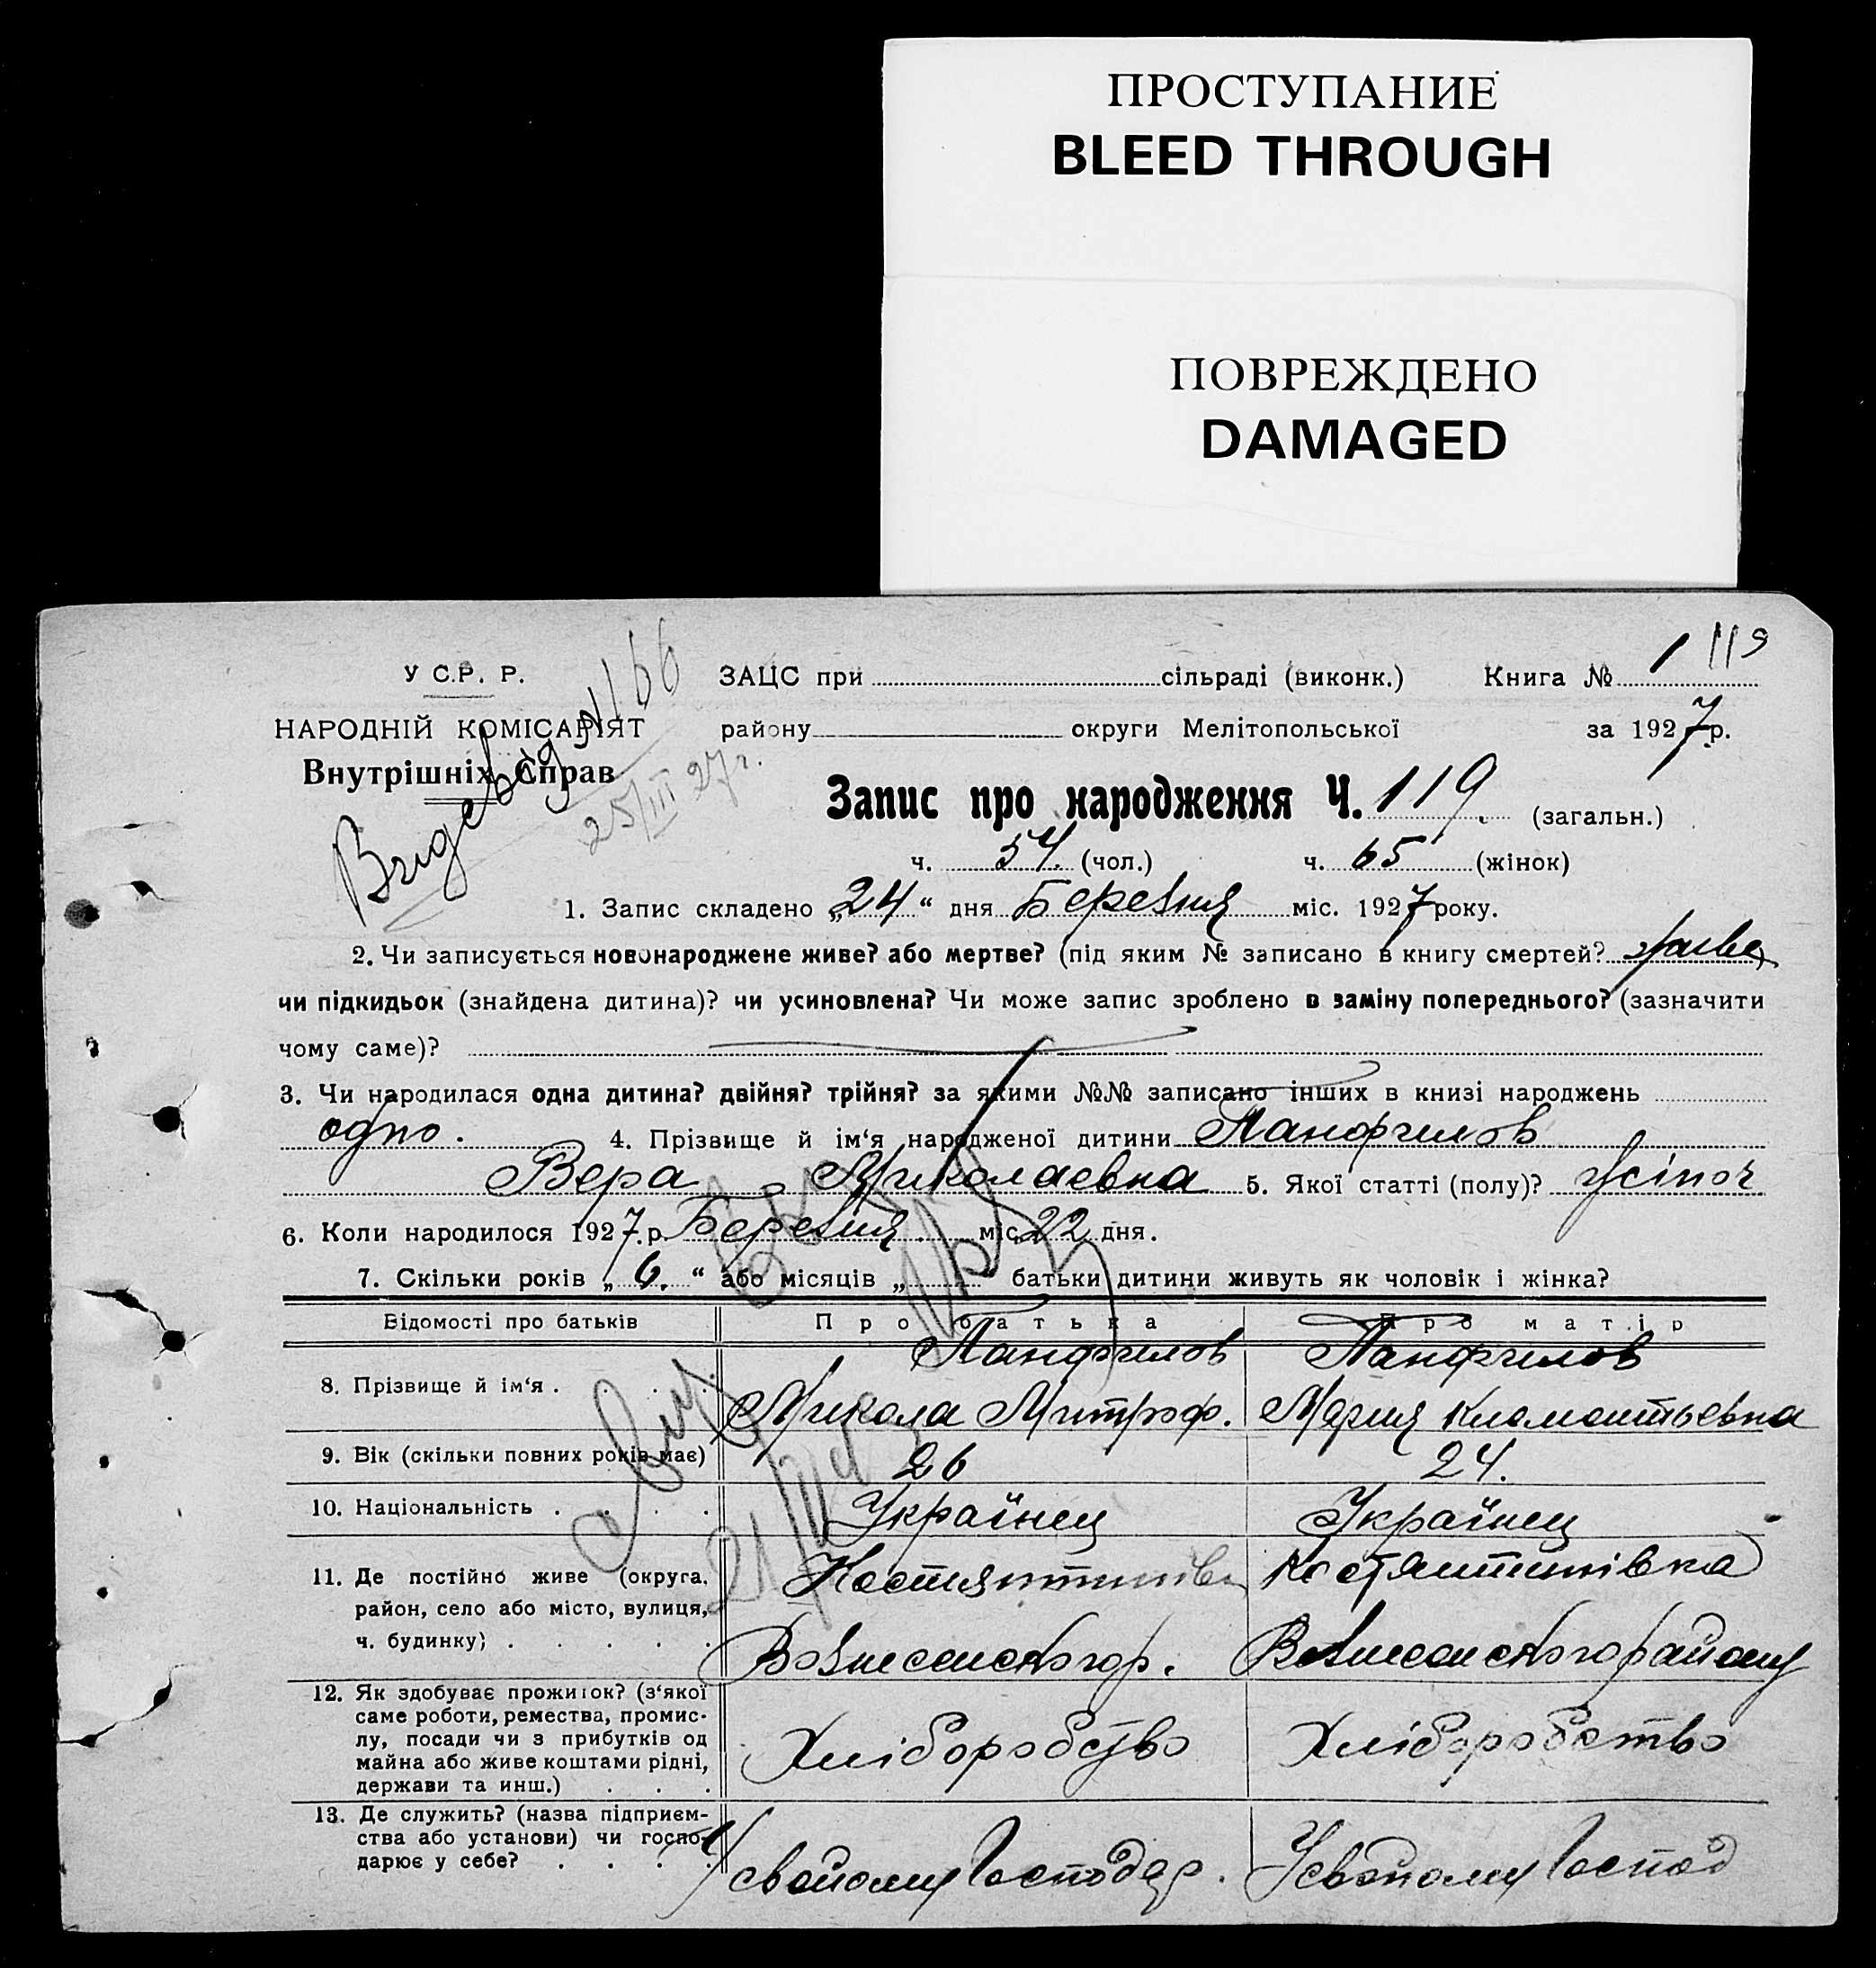 ПРОСТУПАНИЕ
BLEED THROUGH
ПОВРЕЖДЕНО
DAMAGED
У С.Р. Р.
НАРОДНІЙ КОМІСАРІЯТ
Внутрішніх Справ
166
25/III 27 г.
ЗАЦС при сільраді (виконк.) Книга № 1 119
району округи Мелітопольської за 1927 р.
Запис про народження Ч. 119. (загальн.)
ч. 54. (чол.) ч. 65 (жінок)
1. Запис складено „24“ дня Березня міс. 1927 року.
2. Чи записується новонароджене живе? або мертве? (під яким № записано в книгу смертей? живе
чи підкидьок (знайдена дитина)? чи усиновлена? Чи може запис зроблено в заміну попереднього? (зазначити
чому саме)?
3. Чи народилася одна дитина? двійня? трійня? за якими №№ записано інших в книзі народжень
одно. 4. Прізвище й ім‘я народженої дитини Панфилов
Вера Миколаевна 5. Якої статті (полу)? жіноч
6. Коли народилося 1927 р. Березня міс. 22 дня.
7. Скільки років „6.“ або місяців „ “ батьки дитини живуть як чоловік і жінка?
Відомості про батьків Про батька Про матір
8. Прізвище й ім‘я . Панфилов Микола Митроф. Панфилов Мария Климентьевна
9. Вік (скільки повних років має) 26 24.
10. Національність . Українец Українец
11. Де постійно живе (округа, район, село або місто, вулиця, ч. будинку) . Костянтинівка Вознесенского р. Костянтинівка Вознесенского району
12. Як здобуває прожиток? (з‘якої саме роботи, ремества, промислу, посади чи з прибутків од майна або живе коштами рідні, держави та инш.) Хліборобство Хліборобство
13. Де служить? (назва підприємства або установи) чи господарює у себе? У свойому Господар. У свойому Господ